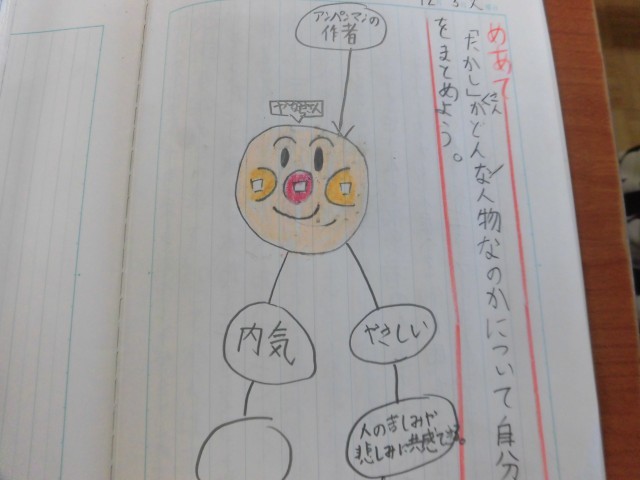 めあて
「たかし」がどんな人物なのかについて自分
さん
をまとめよう。
アンパンマンの
作者
やなせさん
内気
やさしい
人の
悲しみに共感できる。